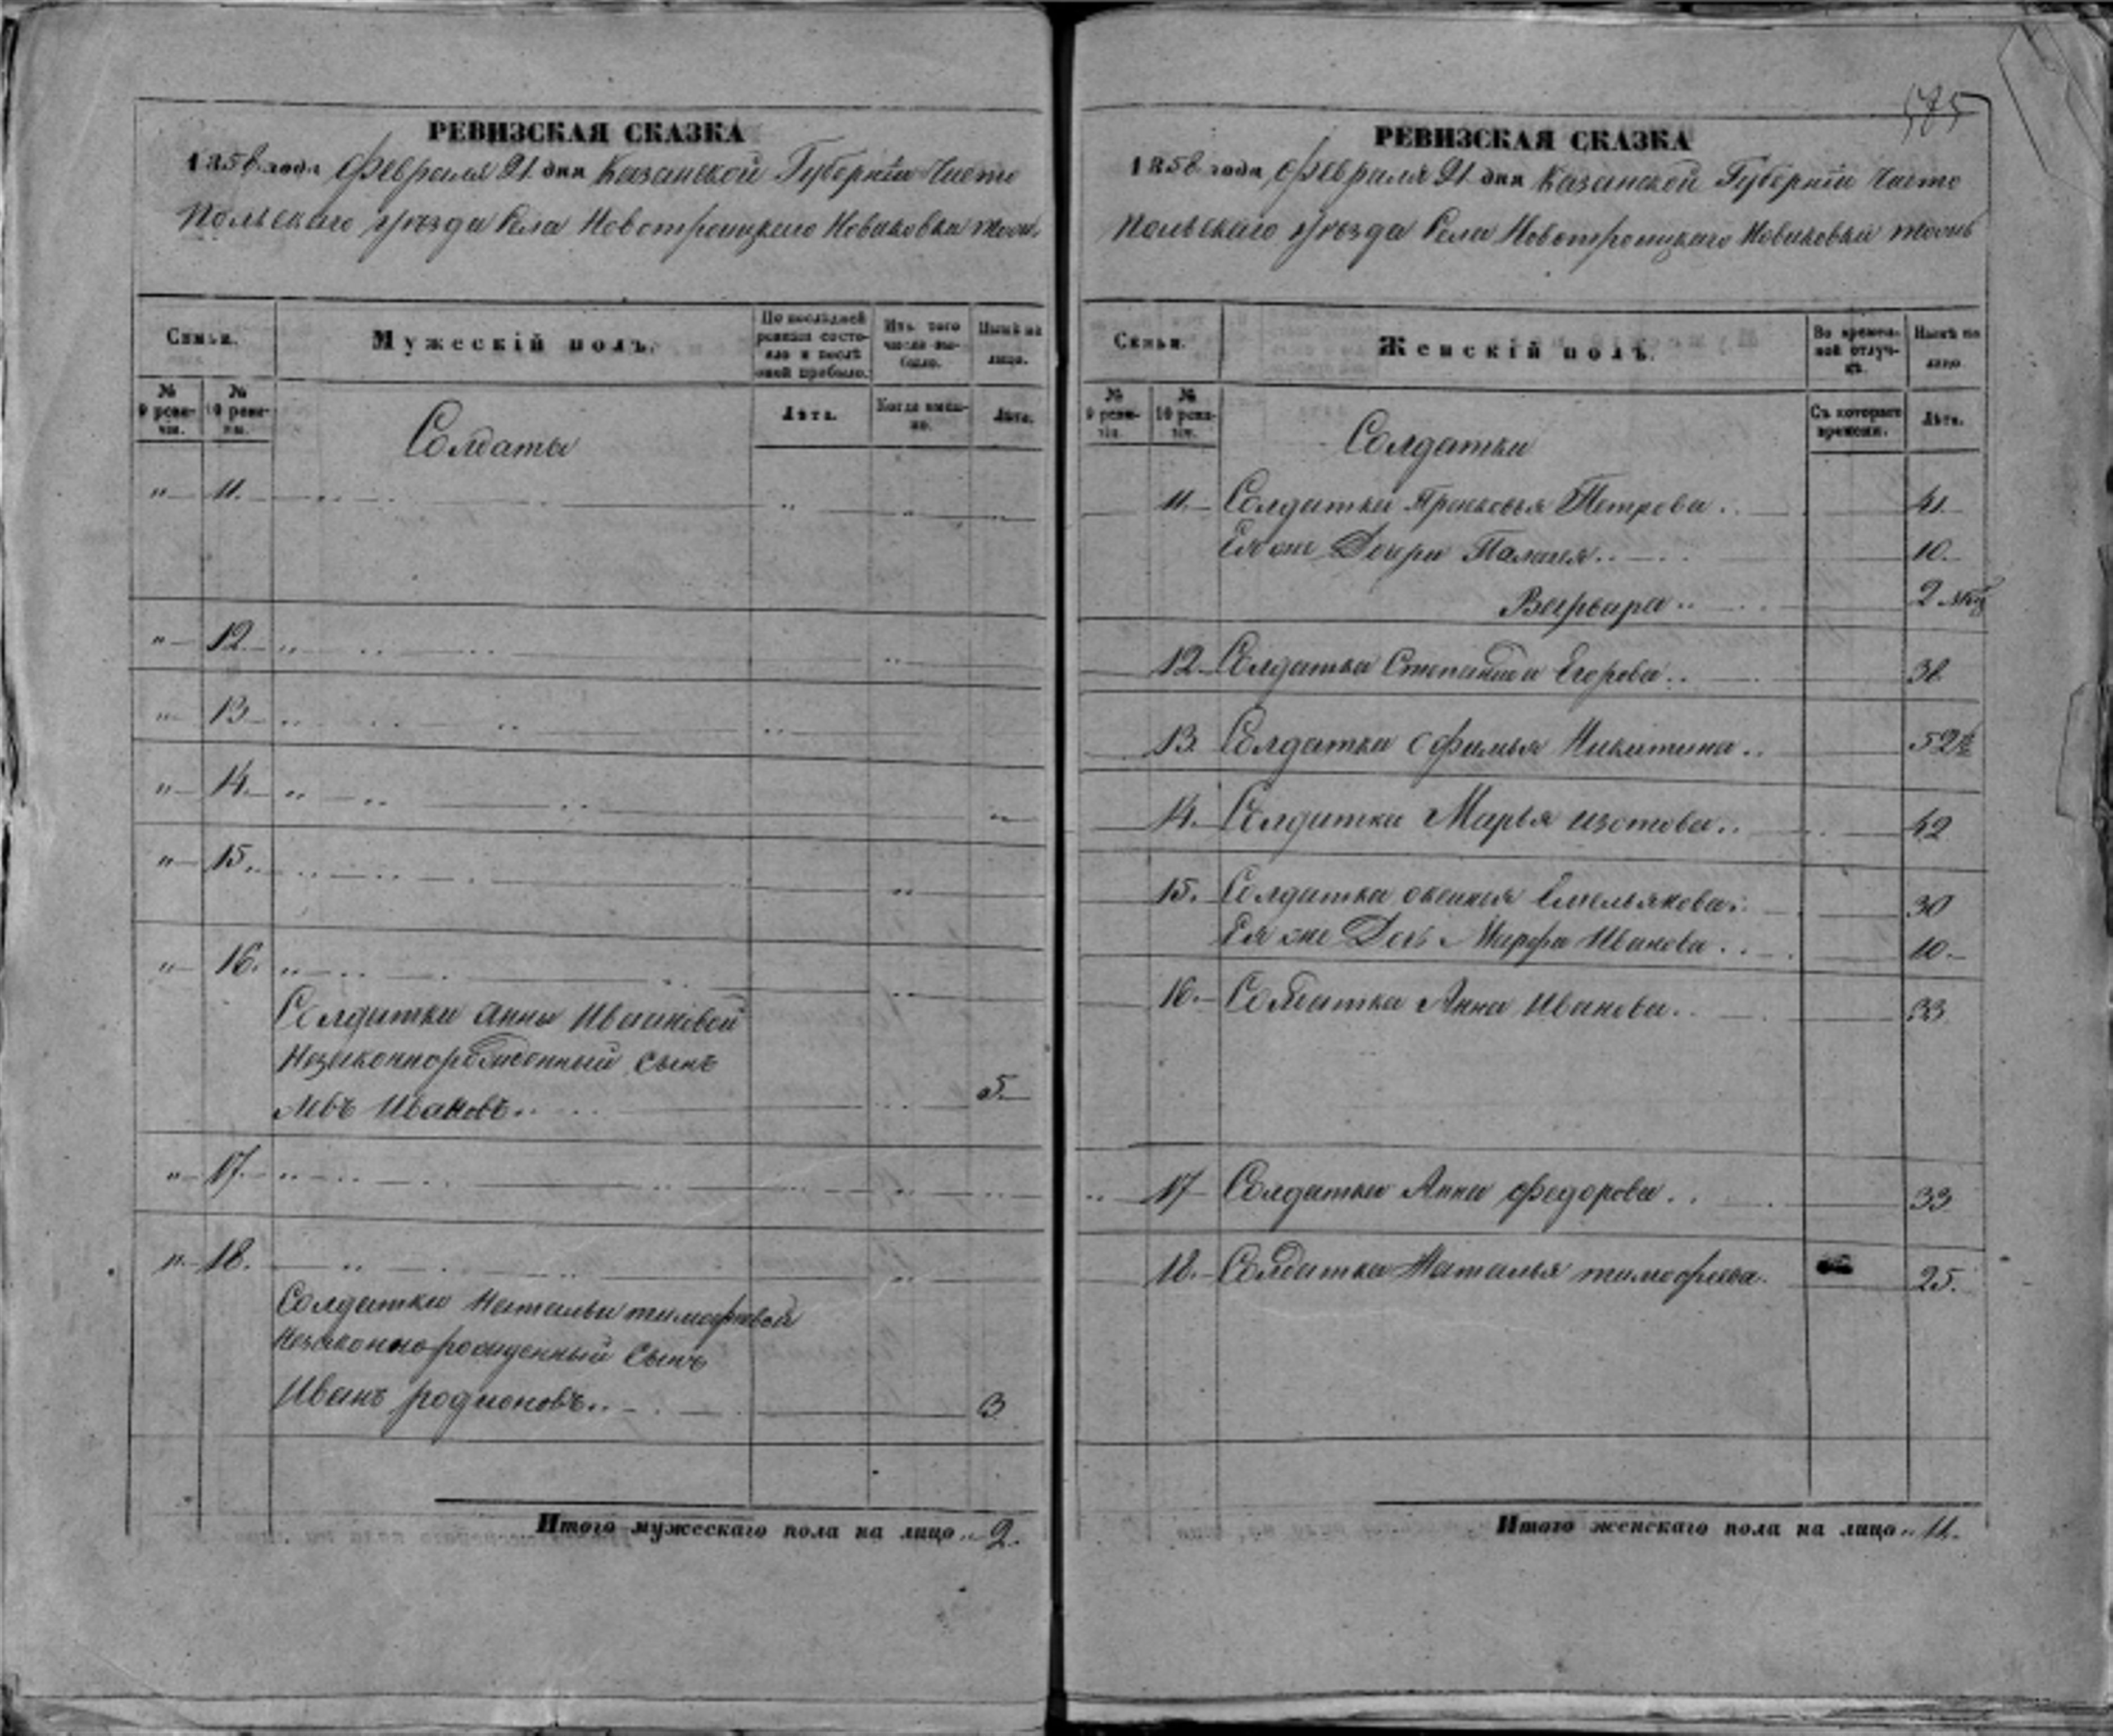 РЕВИЗСКАЯ СКАЗКА
1858 года Февраля 21 дня Казанской Губерніи Чисто
польскаго уѣзда Села Новотроицкаго Новиковка тожъ
Семьи.
Мужескій полъ.
По послѣдней ревизіи состояло и послѣ оной прибыло.
Изъ того числа выбыло.
Нынѣ на лицо.
№ 9 ревизіи.
№ 10 ревизіи.
Лѣта.
Когда именно.
Лѣта.
Солдаты
11.
12
13
14.
15.
16.
Солдатки Анны Ивановой
Незаконнорожденный Сынъ
Левъ Ивановъ 5
17
18.
Солдатки Натальи тимофеевой
Незаконнорожденный Сынъ
Иванъ родионовъ 3
Итого мужескаго пола на лицо 2.
585
РЕВИЗСКАЯ СКАЗКА
1858 года Февраля 21 дня Казанской Губерніи Чисто
польскаго уѣзда Села Новотроицкаго Новиковка тожъ
Семьи.
Женскій полъ.
Во временной отлучкѣ.
Нынѣ на лицо
№ 9 ревизіи.
№ 10 ревизіи.
Съ котораго времени.
Лѣта.
Солдатки
11. Солдатка Прасковья Петрова 41.
Ея же Дочери Палагея 10.
Варвара 2
12 Солдатка Степанида Егорова 38
13. Солдатка Офимья Никитина 52
14. Солдатка Марья изотова 42
15. Солдатка оксинья Емельянова 30
Ея же Дочь Марфа Иванова 10.
16. Солдатка Анна Иванова 33
17 Солдатка Анна федорова 33
18. Солдатка Наталья тимофеева 25.
Итого женскаго пола на лицо 11.